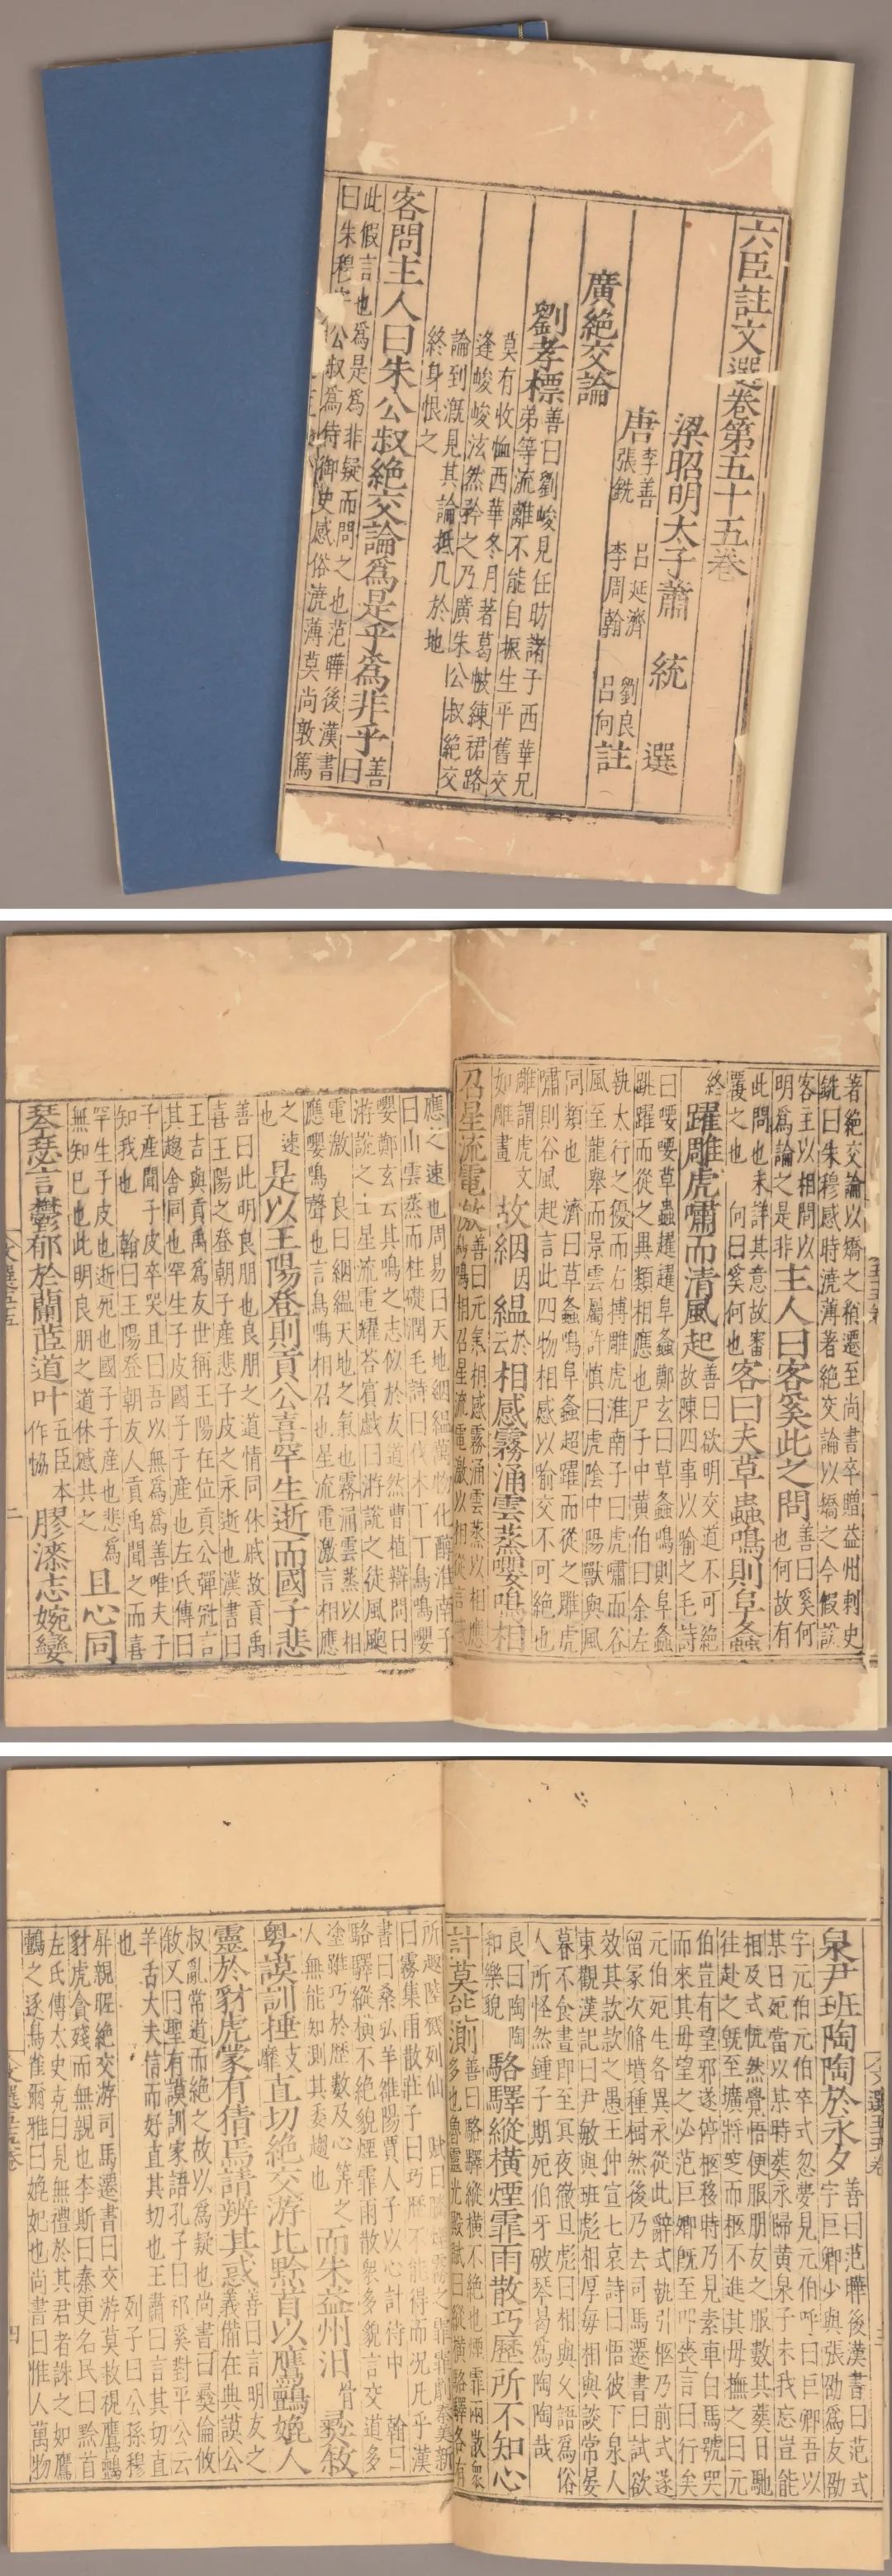 六臣註文選卷第五十五卷
梁昭明太子蕭統選
唐李善呂延濟劉良
張銑李周翰呂向註
廣絕交論
劉孝標善曰劉峻見任昉諸子西華兄
弟等流離不能自振生平舊交
莫有收恤西華冬月著葛帔練裙路
逢峻峻泫然矜之乃廣朱公叔絕交
論到溉見其論抵几於地
終身恨之
客問主人曰朱公叔絕交論為是乎為非乎善曰
此假言也為是為非疑而問之也范曄後漢書
曰朱穆字公叔為侍御史感俗澆薄莫尚敦篤
著絕交論以矯之稍遷至尚書卒贈益州刺史
銑曰朱穆感時澆薄著絕交論以矯之今假設
客主以相問以
明為論之是非主人曰客奚此之問善曰奚何
也何故有
此問也未詳其意故審
覆之也向曰奚何也客曰夫草蟲鳴則阜螽
終躍雕虎嘯而清風起善曰欲明交道不可絕
故陳四事以喻之毛詩
曰喓喓草蟲趯趯阜螽鄭玄曰草螽鳴則阜螽
跳躍而從之異類相應也尸子中黃伯曰余左
執太行之獶而右搏雕虎淮南子曰虎嘯而谷
風至龍舉而景雲屬許慎曰虎陰中陽獸與風
同類也濟曰草螽鳴阜螽超躍而從之雕虎
嘯則谷風起言此四物相感以喻交不可絕也
雕謂虎文
如雕畫故絪因縕於云相感霧涌雲蒸嚶鳴相
召星流電激善曰元氣相感霧涌雲蒸以相應
鳥鳴相召星流電激以相從言
應之速也周易曰天地絪縕萬物化醇淮南子
曰山雲蒸而柱礎潤毛詩曰伐木丁丁鳥鳴嚶
嚶鄭玄云其鳴之志似於友道然曹植辯問曰
游說之士星流電耀荅賓戲曰游說之徒風颮
電激良曰絪縕天地之氣也霧涌雲蒸以相
應嚶鳴聲也言鳥鳴相召也星流電激言相應
之速
也是以王陽登則貢公喜罕生逝而國子悲
善曰此明良朋也良朋之道情同休戚故貢禹
喜王陽之登朝子產悲子皮之永逝也漢書曰
王吉與貢禹為友世稱王陽在位貢公彈冠言
其趨舍同也罕生子皮國子子產也左氏傳曰
子產聞子皮卒哭且曰吾以無為為善唯夫子
知我也翰曰王陽登朝友人貢禹聞之而喜
罕生子皮也逝死也國子子產也悲為
無知己也此明良朋之道休慼共之且心同
琴瑟言鬱郁於蘭茝道叶五臣本作協膠漆志婉孌
泉尹班陶陶於永夕善曰范曄後漢書曰范式
字巨卿少與張劭為友劭
字元伯元伯卒式忽夢見元伯呼曰巨卿吾以
某日死當以某時葬永歸黃泉子未我忘豈能
相及式怳然覺悟便服朋友之服數其葬日馳
往赴之旣至壙將窆而柩不進其母撫之曰元
伯豈有望邪遂停柩移時乃見素車白馬號哭
而來其母望之必范巨卿旣至叩喪言曰行矣
元伯死生各異永從此辭式執引柩乃前式遂
留冢次脩墳種樹然後乃去司馬遷書曰試欲
效其款款之愚王仲宣七哀詩曰悟彼下泉人
東觀漢記曰尹敏與班彪相厚每相與談常晏
暮不食晝即至冥夜徹旦彪曰相與久語為俗
人所怪然鍾子期死伯牙破琴曷為陶陶哉
良曰陶陶
和樂貌駱驛縱橫煙霏雨散巧歷所不知心
計莫能測善曰駱驛縱橫不絕也煙霏雨散衆
多也魯靈光殿賦曰縱橫駱驛各有
所趣陸機列仙賦曰騰煙霧之霏霏劇秦美新
曰霧集雨散莊子曰巧歷不能得而況凡乎漢
書曰桑弘羊雒陽賈人子以心計侍中翰曰
駱驛縱橫不絕貌煙霏雨散衆多貌言交道多
塗雖巧於歷數及心筭之
人無能知測其委趨也而朱益州汨骨彝敘
粤謨訓捶支靡直切絕交游比黔首以鷹鸇媲人
靈於豺虎蒙有猜焉請辨其惑善曰言朋友之
義備在典謨公
叔亂常道而絕之故以為疑也尚書曰彝倫攸
敘又曰聖有謨訓家語孔子曰祁奚對平公云
羊舌大夫信而好直其切也王肅曰言其切直
也列子曰公孫穆
屏親昵絕交游司馬遷書曰交游莫救視鷹鸇
豺虎貪殘而無親也李斯曰秦更名民曰黔首
左氏傳太史克曰見無禮於其君者誅之如鷹
鸇之逐鳥雀爾雅曰媲妃也尚書曰惟人萬物